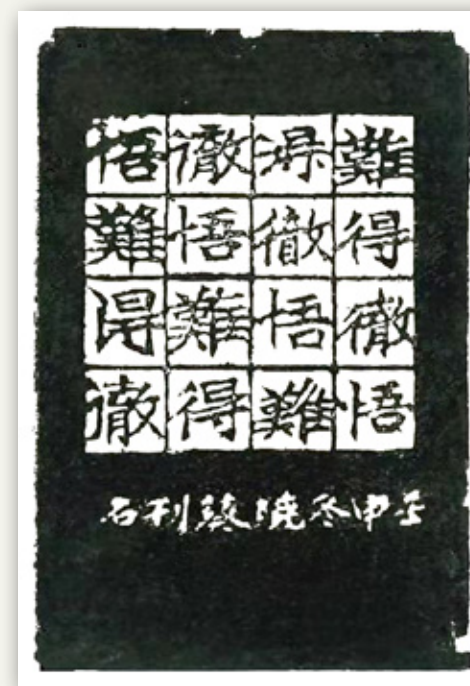 難得徹悟
得徹悟難
徹悟難得
悟難得徹
申冬石